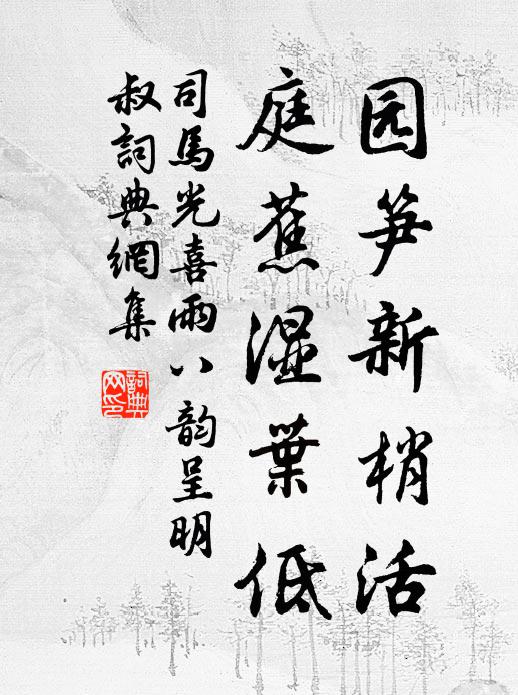 园笋新梢活
庭蕉湿葉低
司馬光喜雨八韵呈明
叔詞典網集
詞典網印